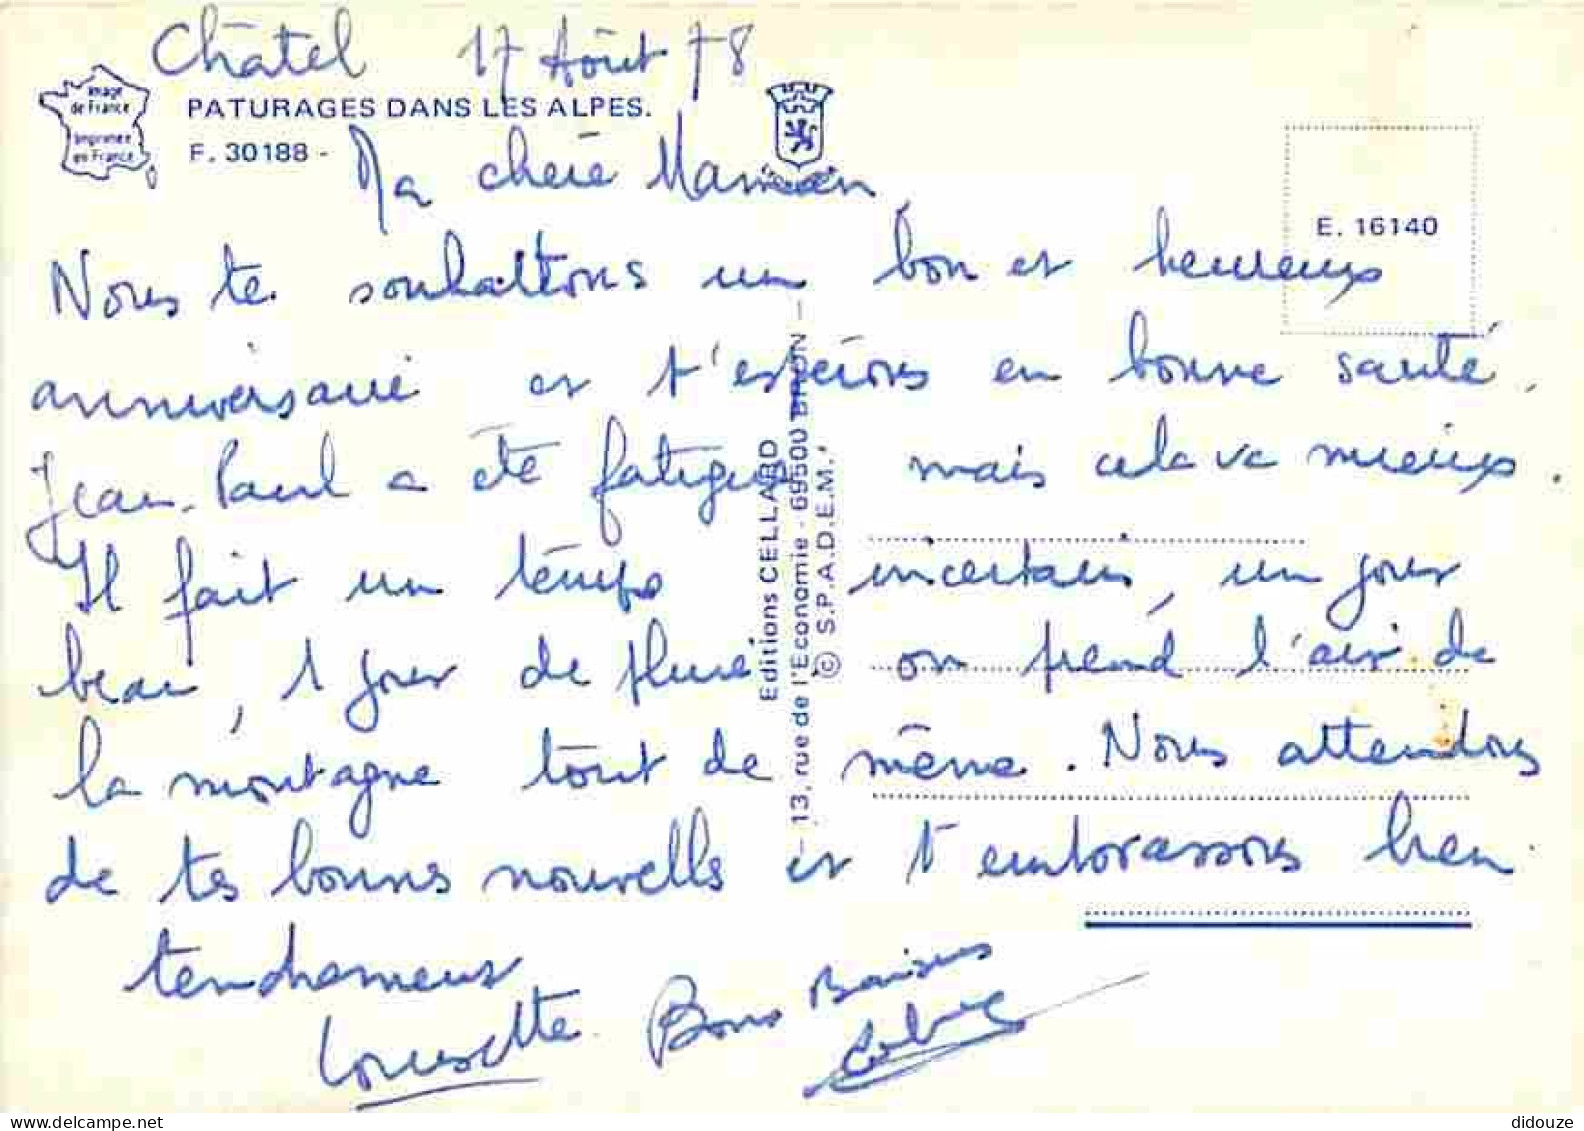 Châtel 17 Août 78
Image
de France
Imprimée
en France
PATURAGES DANS LES ALPES.
F. 30188 -
Ma chère Maman
E. 16140
Nous te souhaitons un bon et heureux
anniversaire et t'espérons en bonne santé.
Jean-Paul a été fatigué mais cela va mieux.
Il fait un temps incertain, un jour
beau, 1 jour de pluie on prend l'air de
la montagne tout de même. Nous attendons
de tes bonnes nouvelles et t'embrassons bien
tendrement
Lousette Bons Baisers
Editions CELLARD
— 13, rue de l'Economie - 69500 BRON —
© S.P.A.D.E.M.
didouze